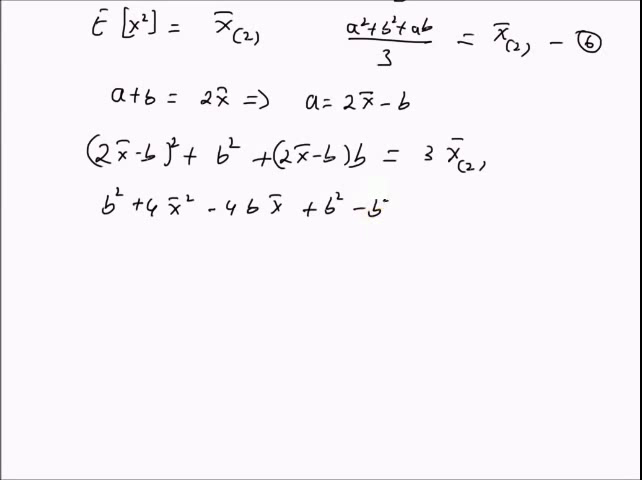 E [x²] = x̄₍₂₎ (a²+b²+ab)/3 = x̄₍₂₎ - ⑥
a+b = 2x̄ => a = 2x̄ - b
(2x̄-b)² + b² + (2x̄-b)b = 3 x̄₍₂₎
b² + 4x̄² - 4bx̄ + b² - b²